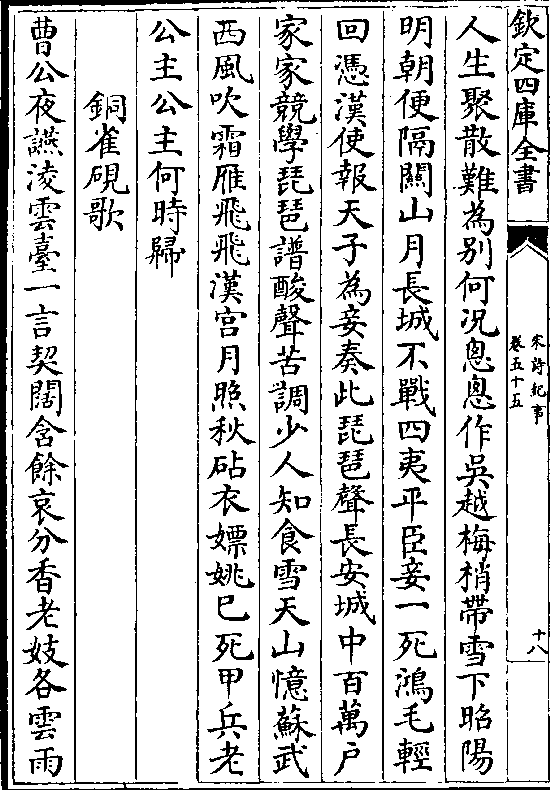 欽定四庫全書
宋詩紀事
卷五十五
十八
人生聚散難為别何况悤悤作吳越梅梢帶雪下昭陽
明朝便隔關山月長城不戰四夷平臣妾一死鴻毛輕
回憑漢使報天子為妾奏此琵琶聲長安城中百萬户
家家競學琵琶譜酸聲苦調少人知食雪天山憶蘇武
西風吹霜雁飛飛漢宫月照秋砧衣嫖姚已死甲兵老
公主公主何時歸
銅雀硯歌
曹公夜讌淩雲臺一言契闊含餘哀分香老妓各雲雨